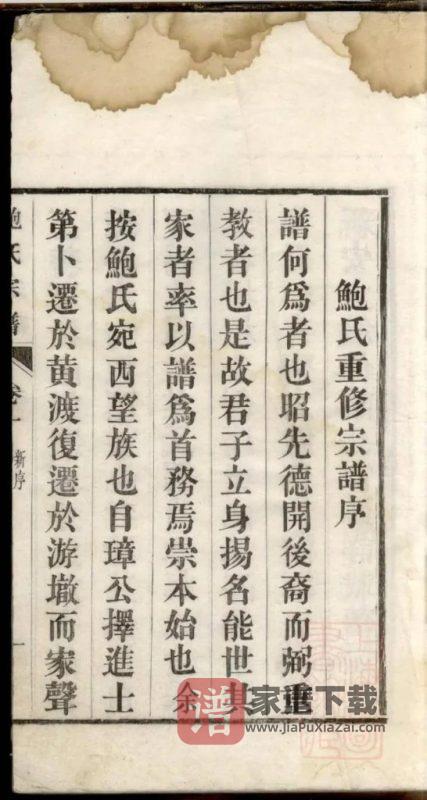 鮑氏重修宗譜序
譜何爲者也昭先德開後裔而弼重
教者也是故君子立身揚名能世其
家者率以譜爲首務焉崇本始也余
按鮑氏宛西望族也自璋公擇進士
第卜遷於黄渡復遷於游墩而家聲
鮑氏宗譜
卷一
新序
一
譜
家譜下载
www.jiaPuXiazai.com